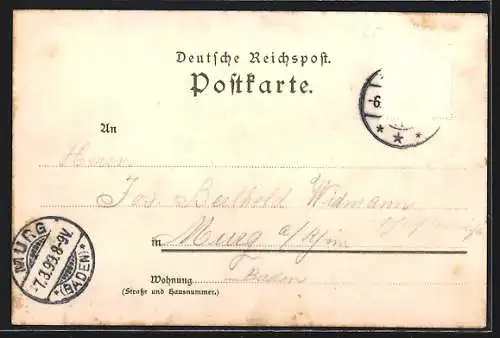 Deutsche Reichspost.
Postkarte.
-6.
An
Herrn
Jos. Berthold Widmann
in Murg a/Rhein
Baden
Wohnung
(Straße und Hausnummer.)
MURG
-7.3.99.8-9V.
*(BADEN)*